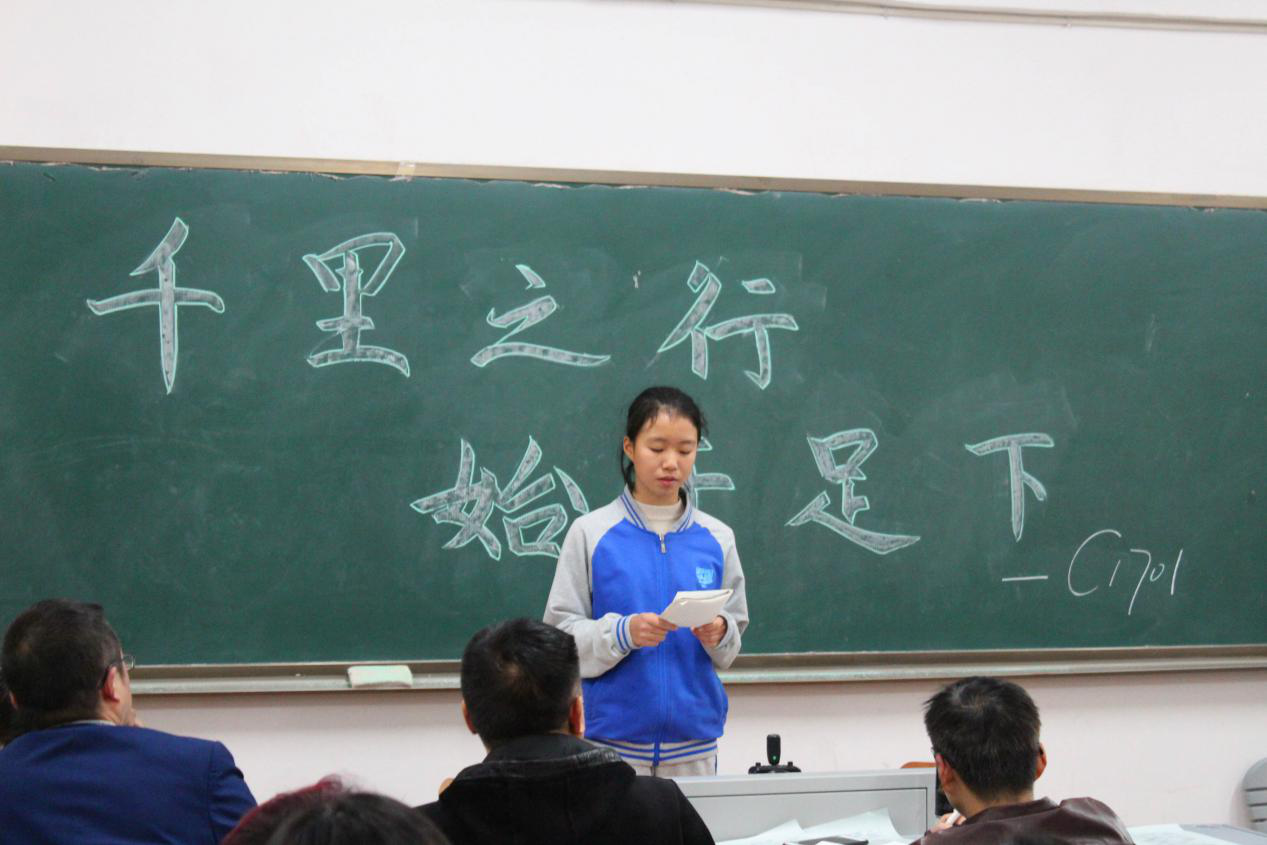 千里之行
始 足下
— C1701